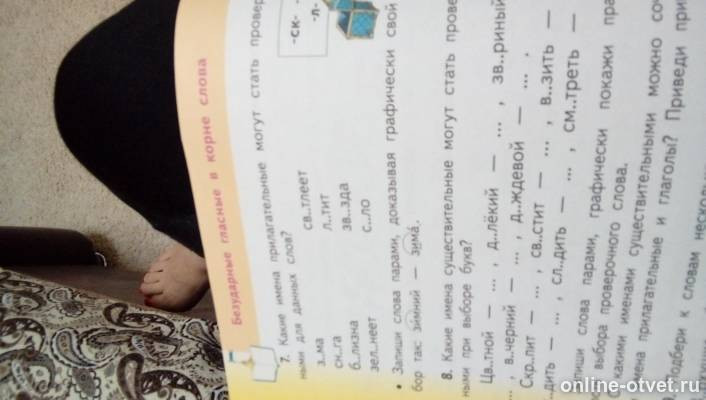 -ск-
-л-
Безударные гласные в корне слова
7. Какие имена прилагательные могут стать провер
ными для данных слов?
з..ма св..тлеет
сн..га л..тит
б..лизна зв..зда
зел..неет с..ло
• Запиши слова парами, доказывая графически свой
бор так: зимний — зима.
8. Какие имена существительные могут стать прове
ными при выборе букв?
Цв..тной — ... , д..лёкий — ... , зв..риный
... , в..черний — ... , д..ждевой — ... .
Скр..пит — ... , св..стит — ... , в..зить —
..дить — ... , сл..дить — ... , см..треть —
слова парами, графически покажи пра
выбора проверочного слова.
С какими именами существительными можно соч
имена прилагательные и глаголы? Приведи при
Подбери к словам несколь
online-otvet.ru